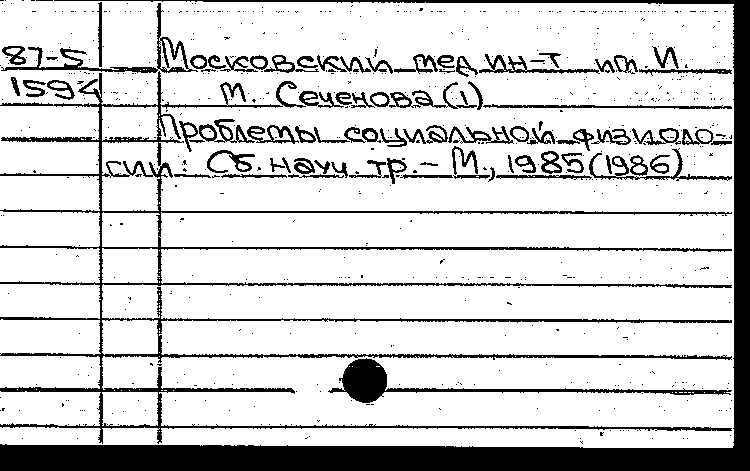 87-5 Московский мед. ин-т им. И.
1594 М. Сеченова (1)
Проблемы социальной физиоло-
гии: Сб. науч. тр. - М., 1985(1986)